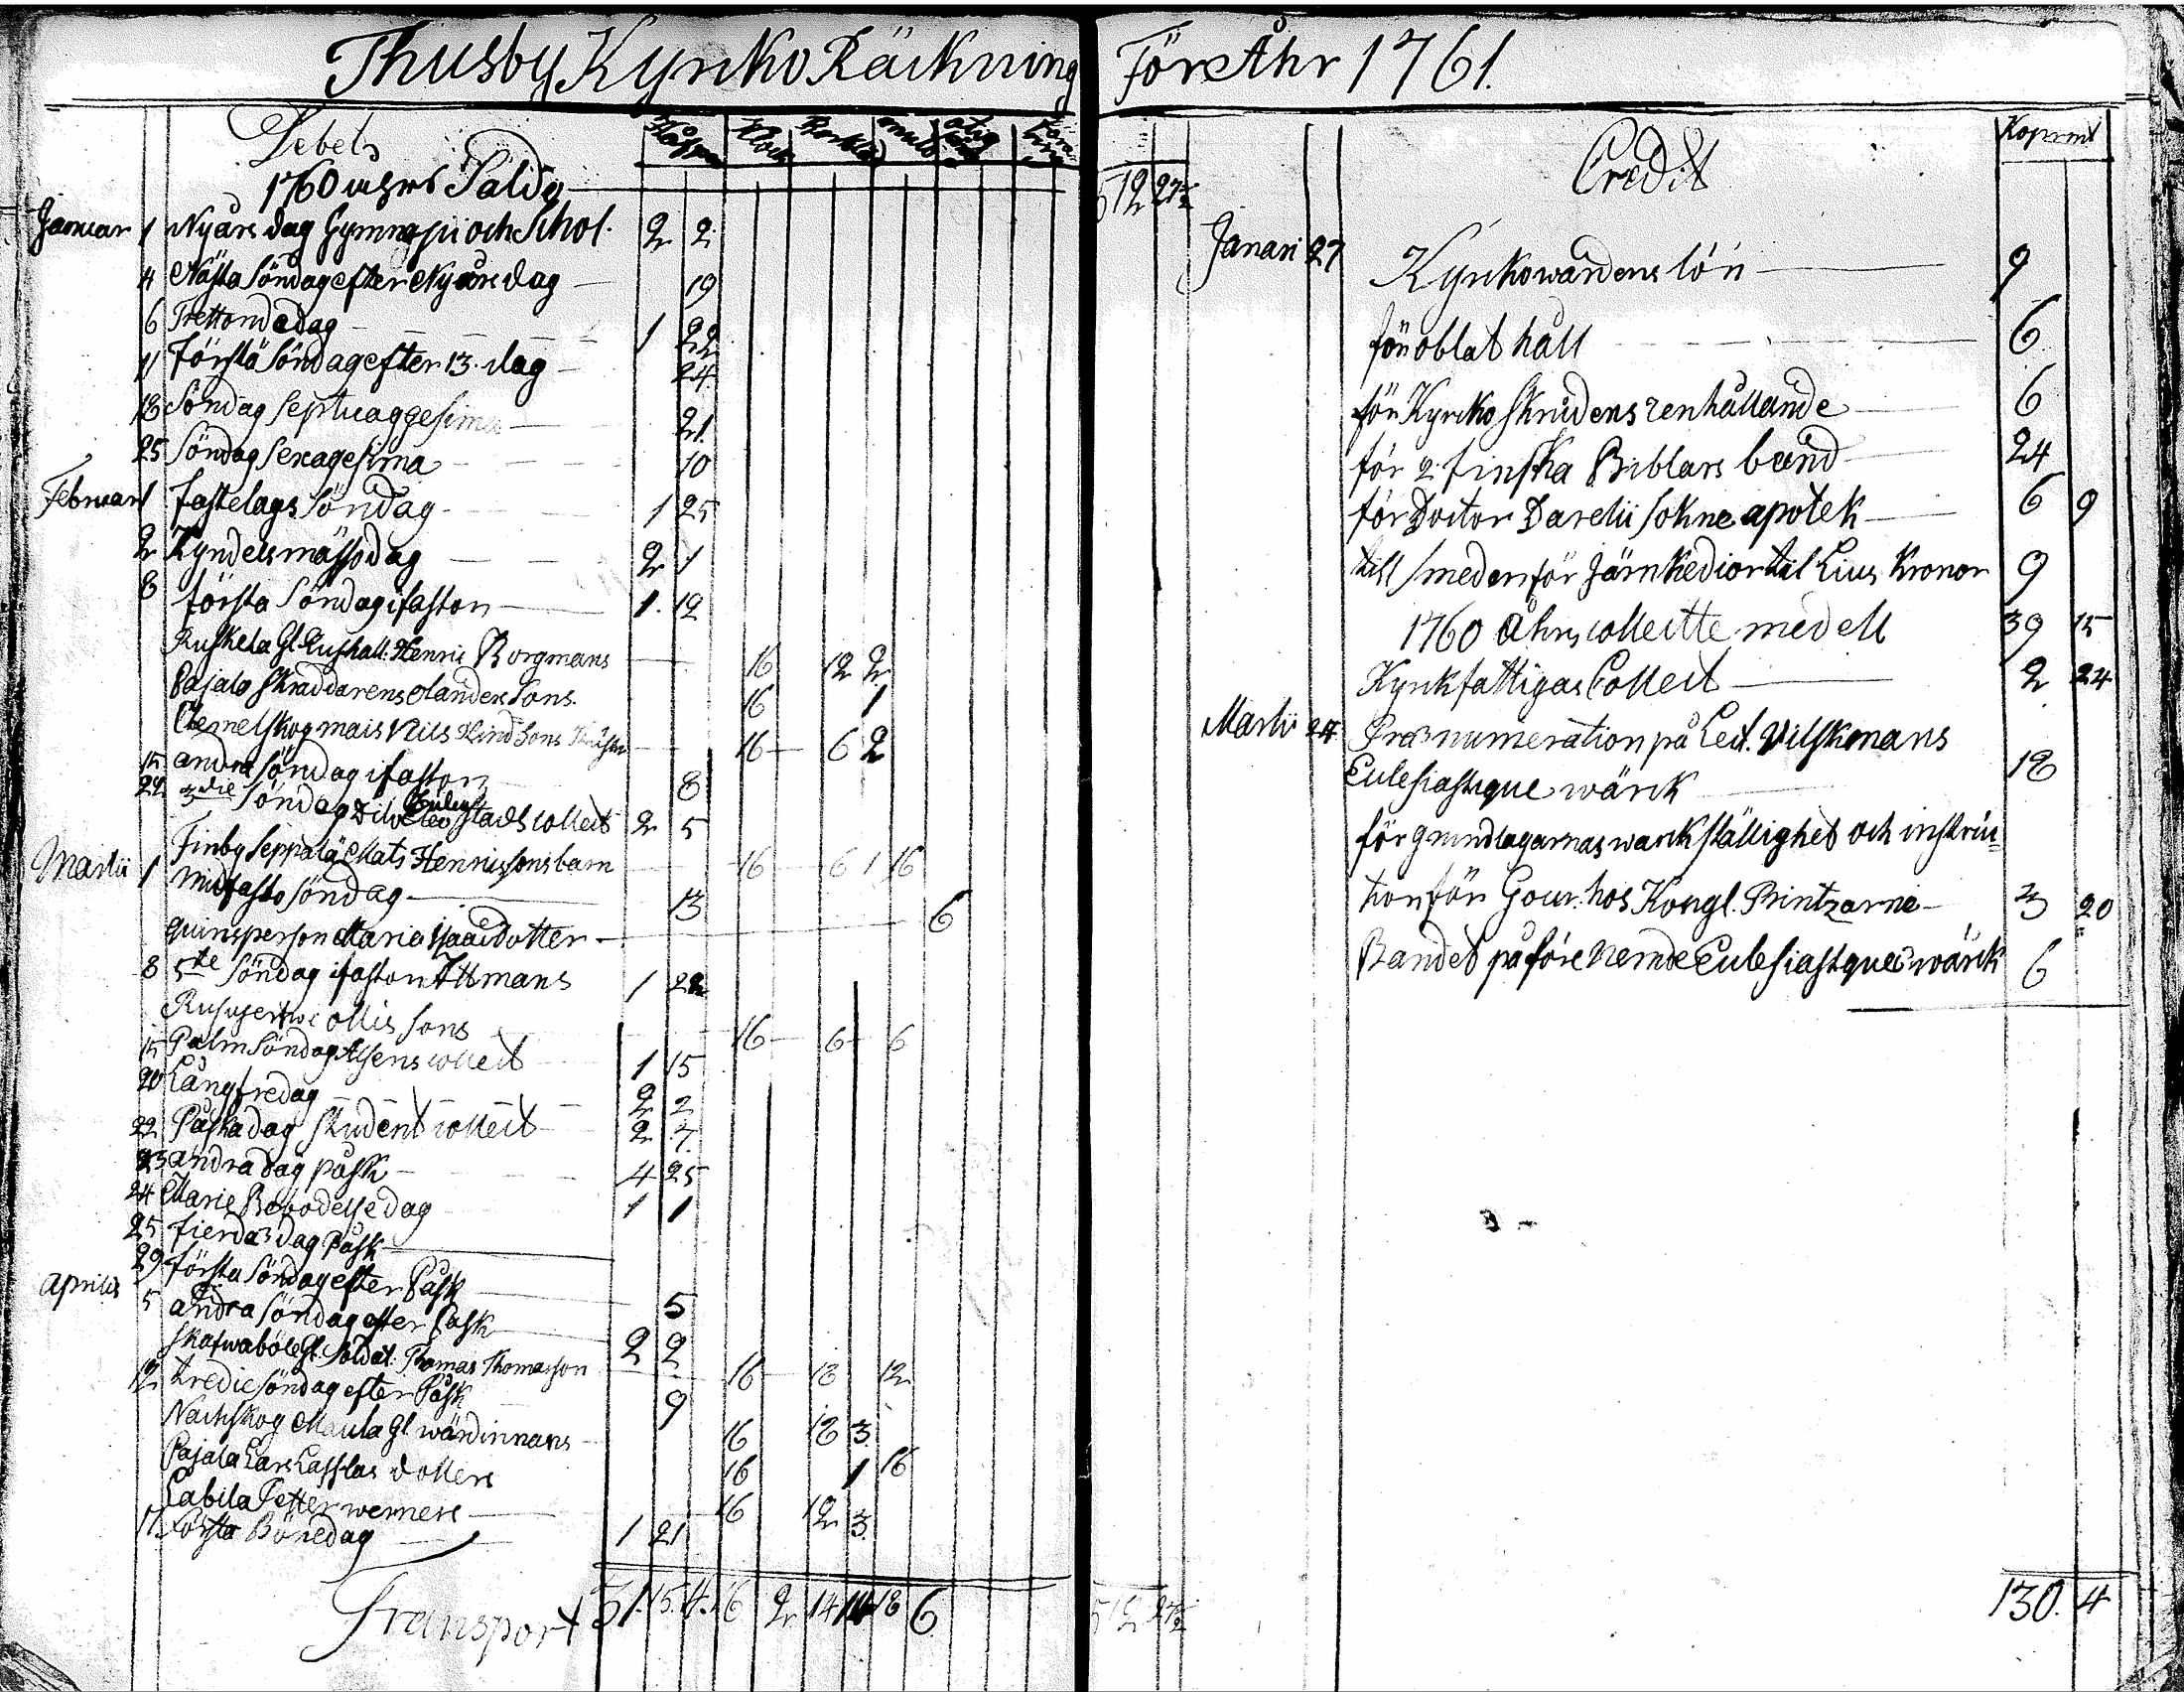 Thusby Kyrko Räckning För Åhr 1761.
Debet
Håfven Klock Bår kläd
1760 Saldo 512 27½
Januar 1 Nyårs dag Gymnasii och Schol. 2 2
4 Nästa Söndag efter Nyårs dag 19
6 Trettonde dag 1 22
11 Första Söndag efter 13. dag 24
18 Söndag Septuaggesima 21
25 Söndag Sexagesima 10
Februari 1 Fastelags Söndag 1 25
2 Kyndelsmässo dag 2 1
8 första Söndag i faston 1. 12
Ruskela Gl. Rushåll. Henric Borgmans 16 12 2
Pajala Skräddarens Olanders Sons. 16 1
Nils Hindsons 16 6 2
15 andra Söndag i faston 8
22 3die Söndag stads Collect 2 5
Finby Seppälä Mats Henrissons barn 16 6 1 16
Martii 1 Midfasto Söndag 13
quinsperson Maria dotter 6
8 5te Söndag i faston Ittmans 1 22
Ollis Sons 16 6 6
15 Palm Söndag Collect 1 15
20 Långfredag 2 2
22 Påska dag Student Collect 2 7.
23 andra dag påsk 4 25
24 Marie Bebodelse dag 1 1
25 fierde dag Påsk
29 första Söndag efter Påsk 5
Aprilis 5 andra Söndag efter Påsk 2 2
Skafwaböle Gl. Soldat. Thomas Thomasson 16 18 12
12 tredie Söndag efter Påsk 9
Nackskog Maula Gl wärdinnans 16 18 3.
Pajala Lars dotters 16 1 16
Labila Petter werners 16 12 3.
17 Första Bönedag 1 21
Transport 31. 15. 4. 16 2 14 14 18 6 512 27½
Credit
Koprmt
Januari 27 Kyrkowärdens lön 9
för oblat håll 6
för Kyrcko Skrudens renhållande 6
för 2. Finska Biblars band 24
för Doctor Darelii Sokne apotek 6 9
till Smeden för Järn Kedior til Lius Kronor 9
1760 Åhrs Collecte medell 39 15
Kyrkfattigas Collect 2 24
Martii 24 Prænumeration på Lect. Wilskmans
Eclesiastique wärck 18
för grundlagarnas warckställighet och instruc=
tion för Gouv. hos Kongl. Printzarne 3 20
Bandet på före nemde Eclesiastque wärck 6
130. 4